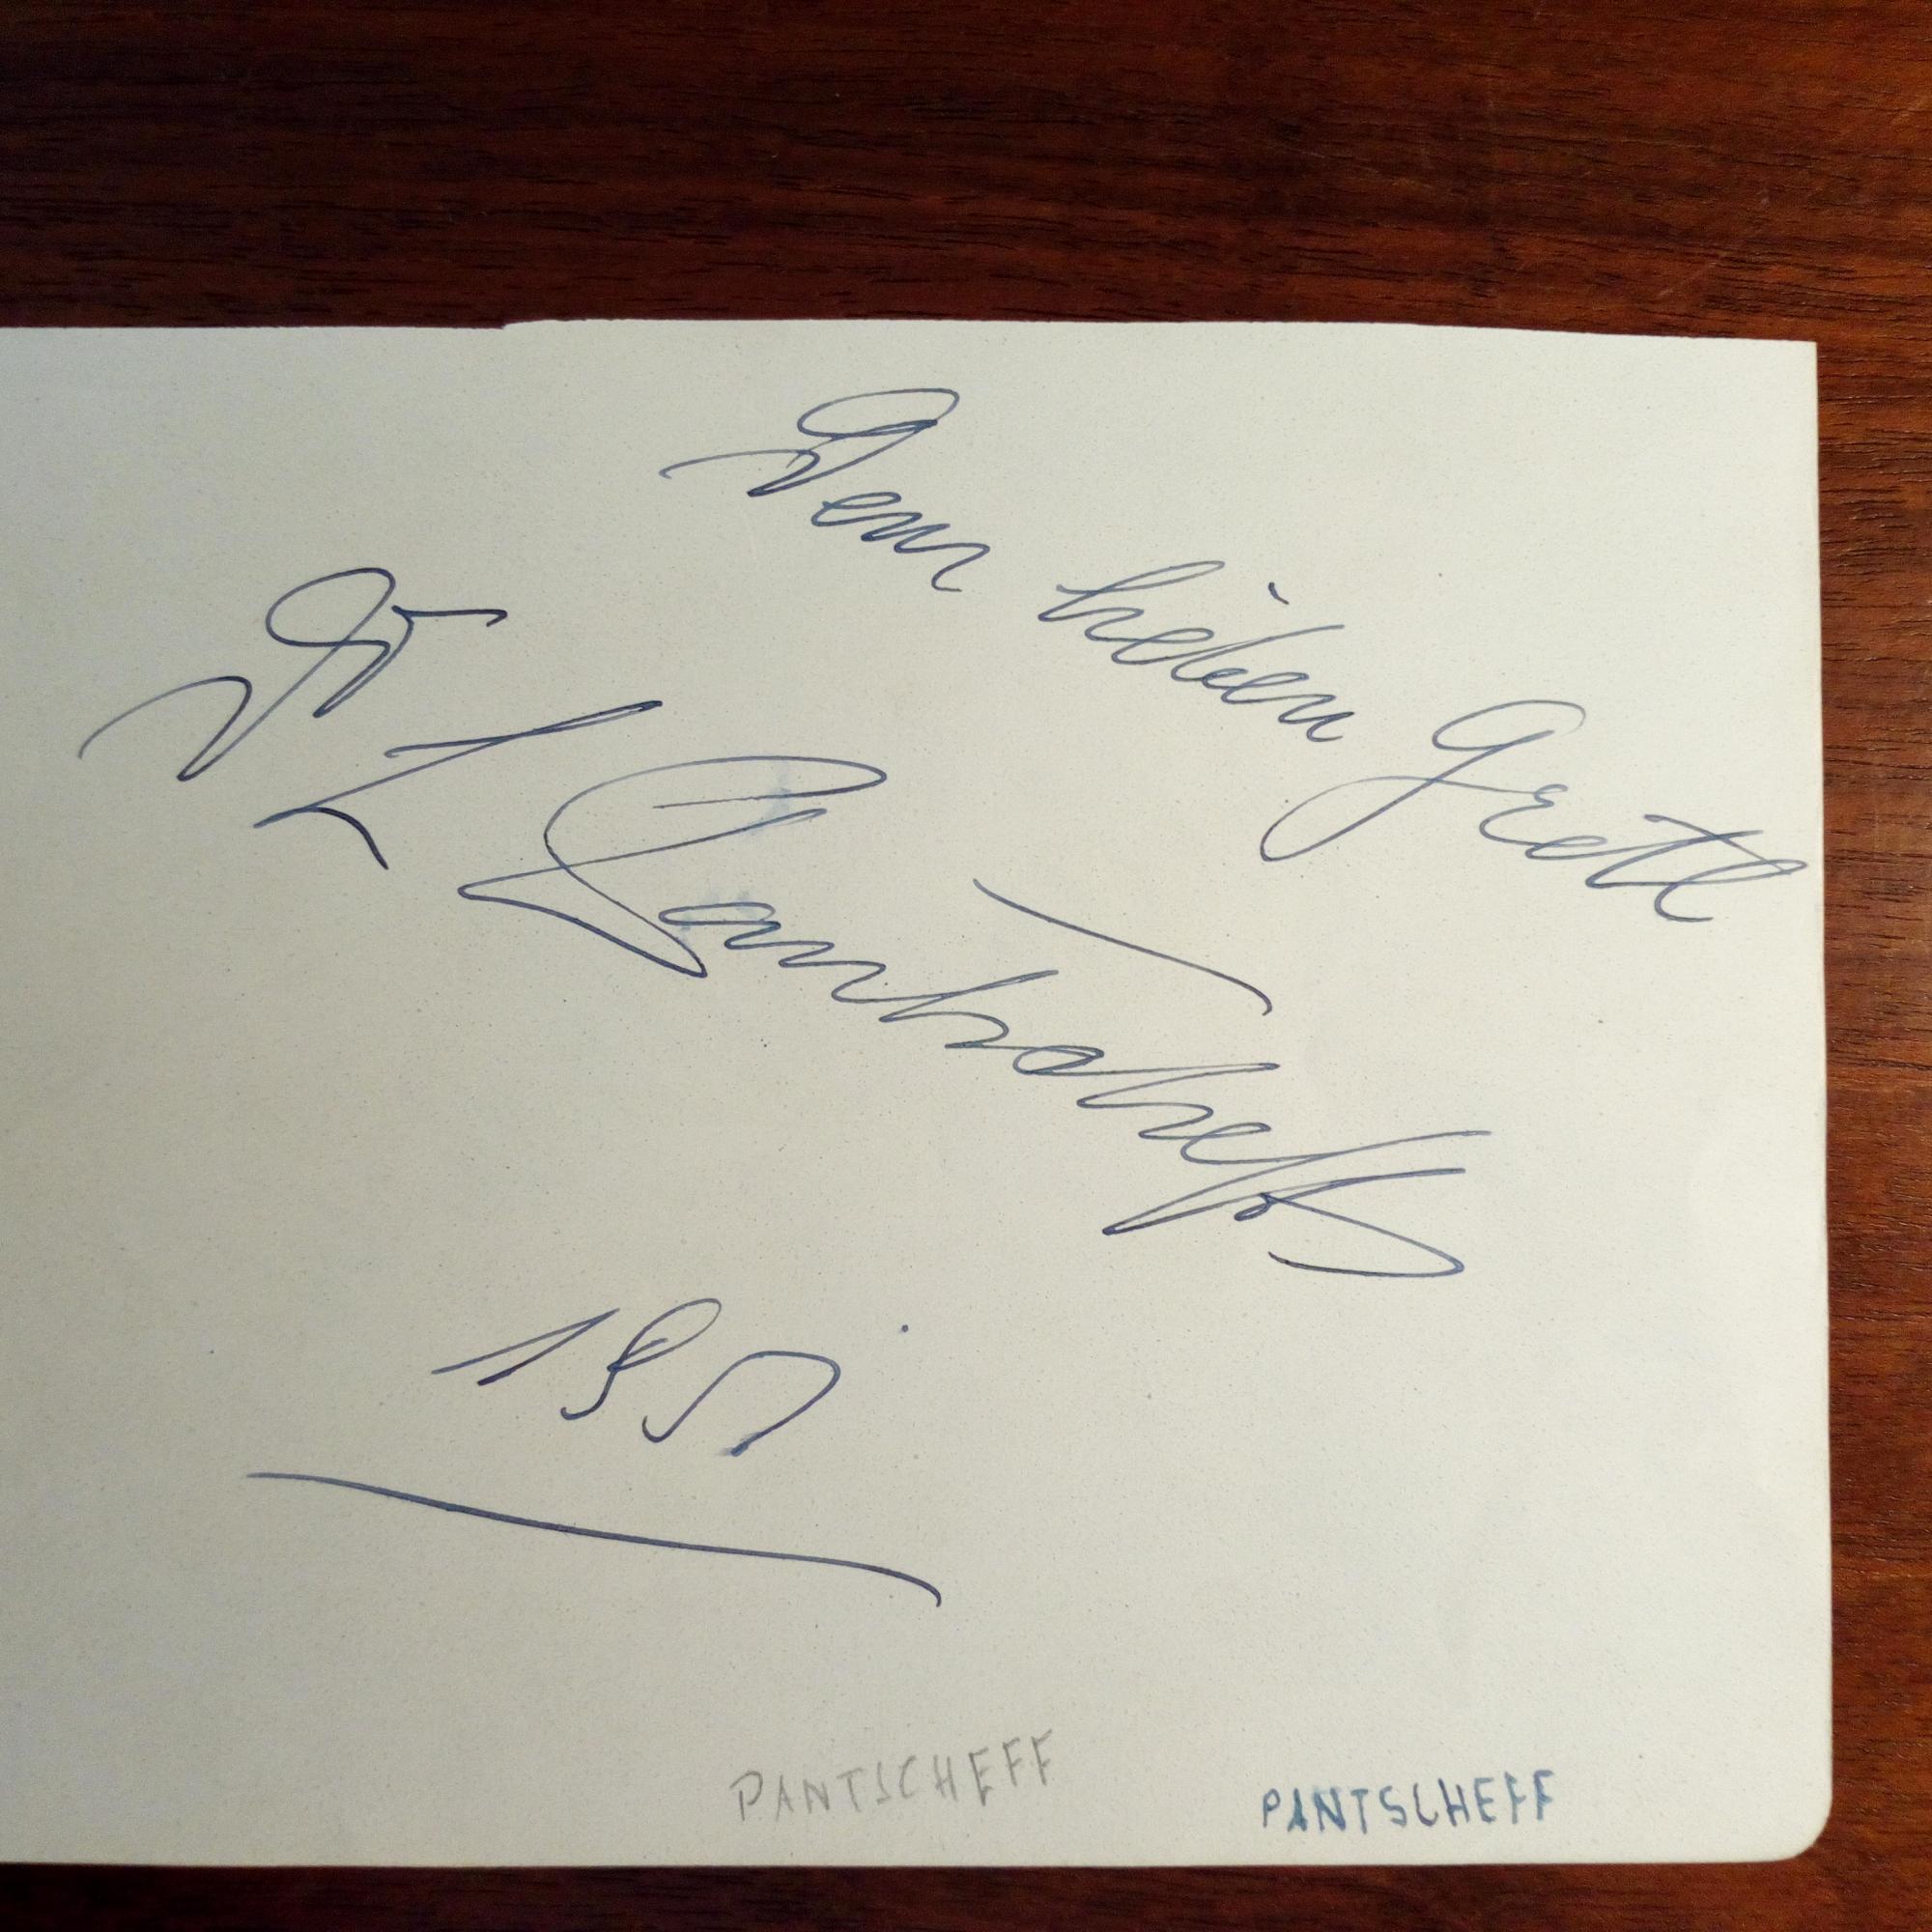 Dem lieben Gretl
Dr L Pantscheff
PANTSCHEFF PANTSCHEFF